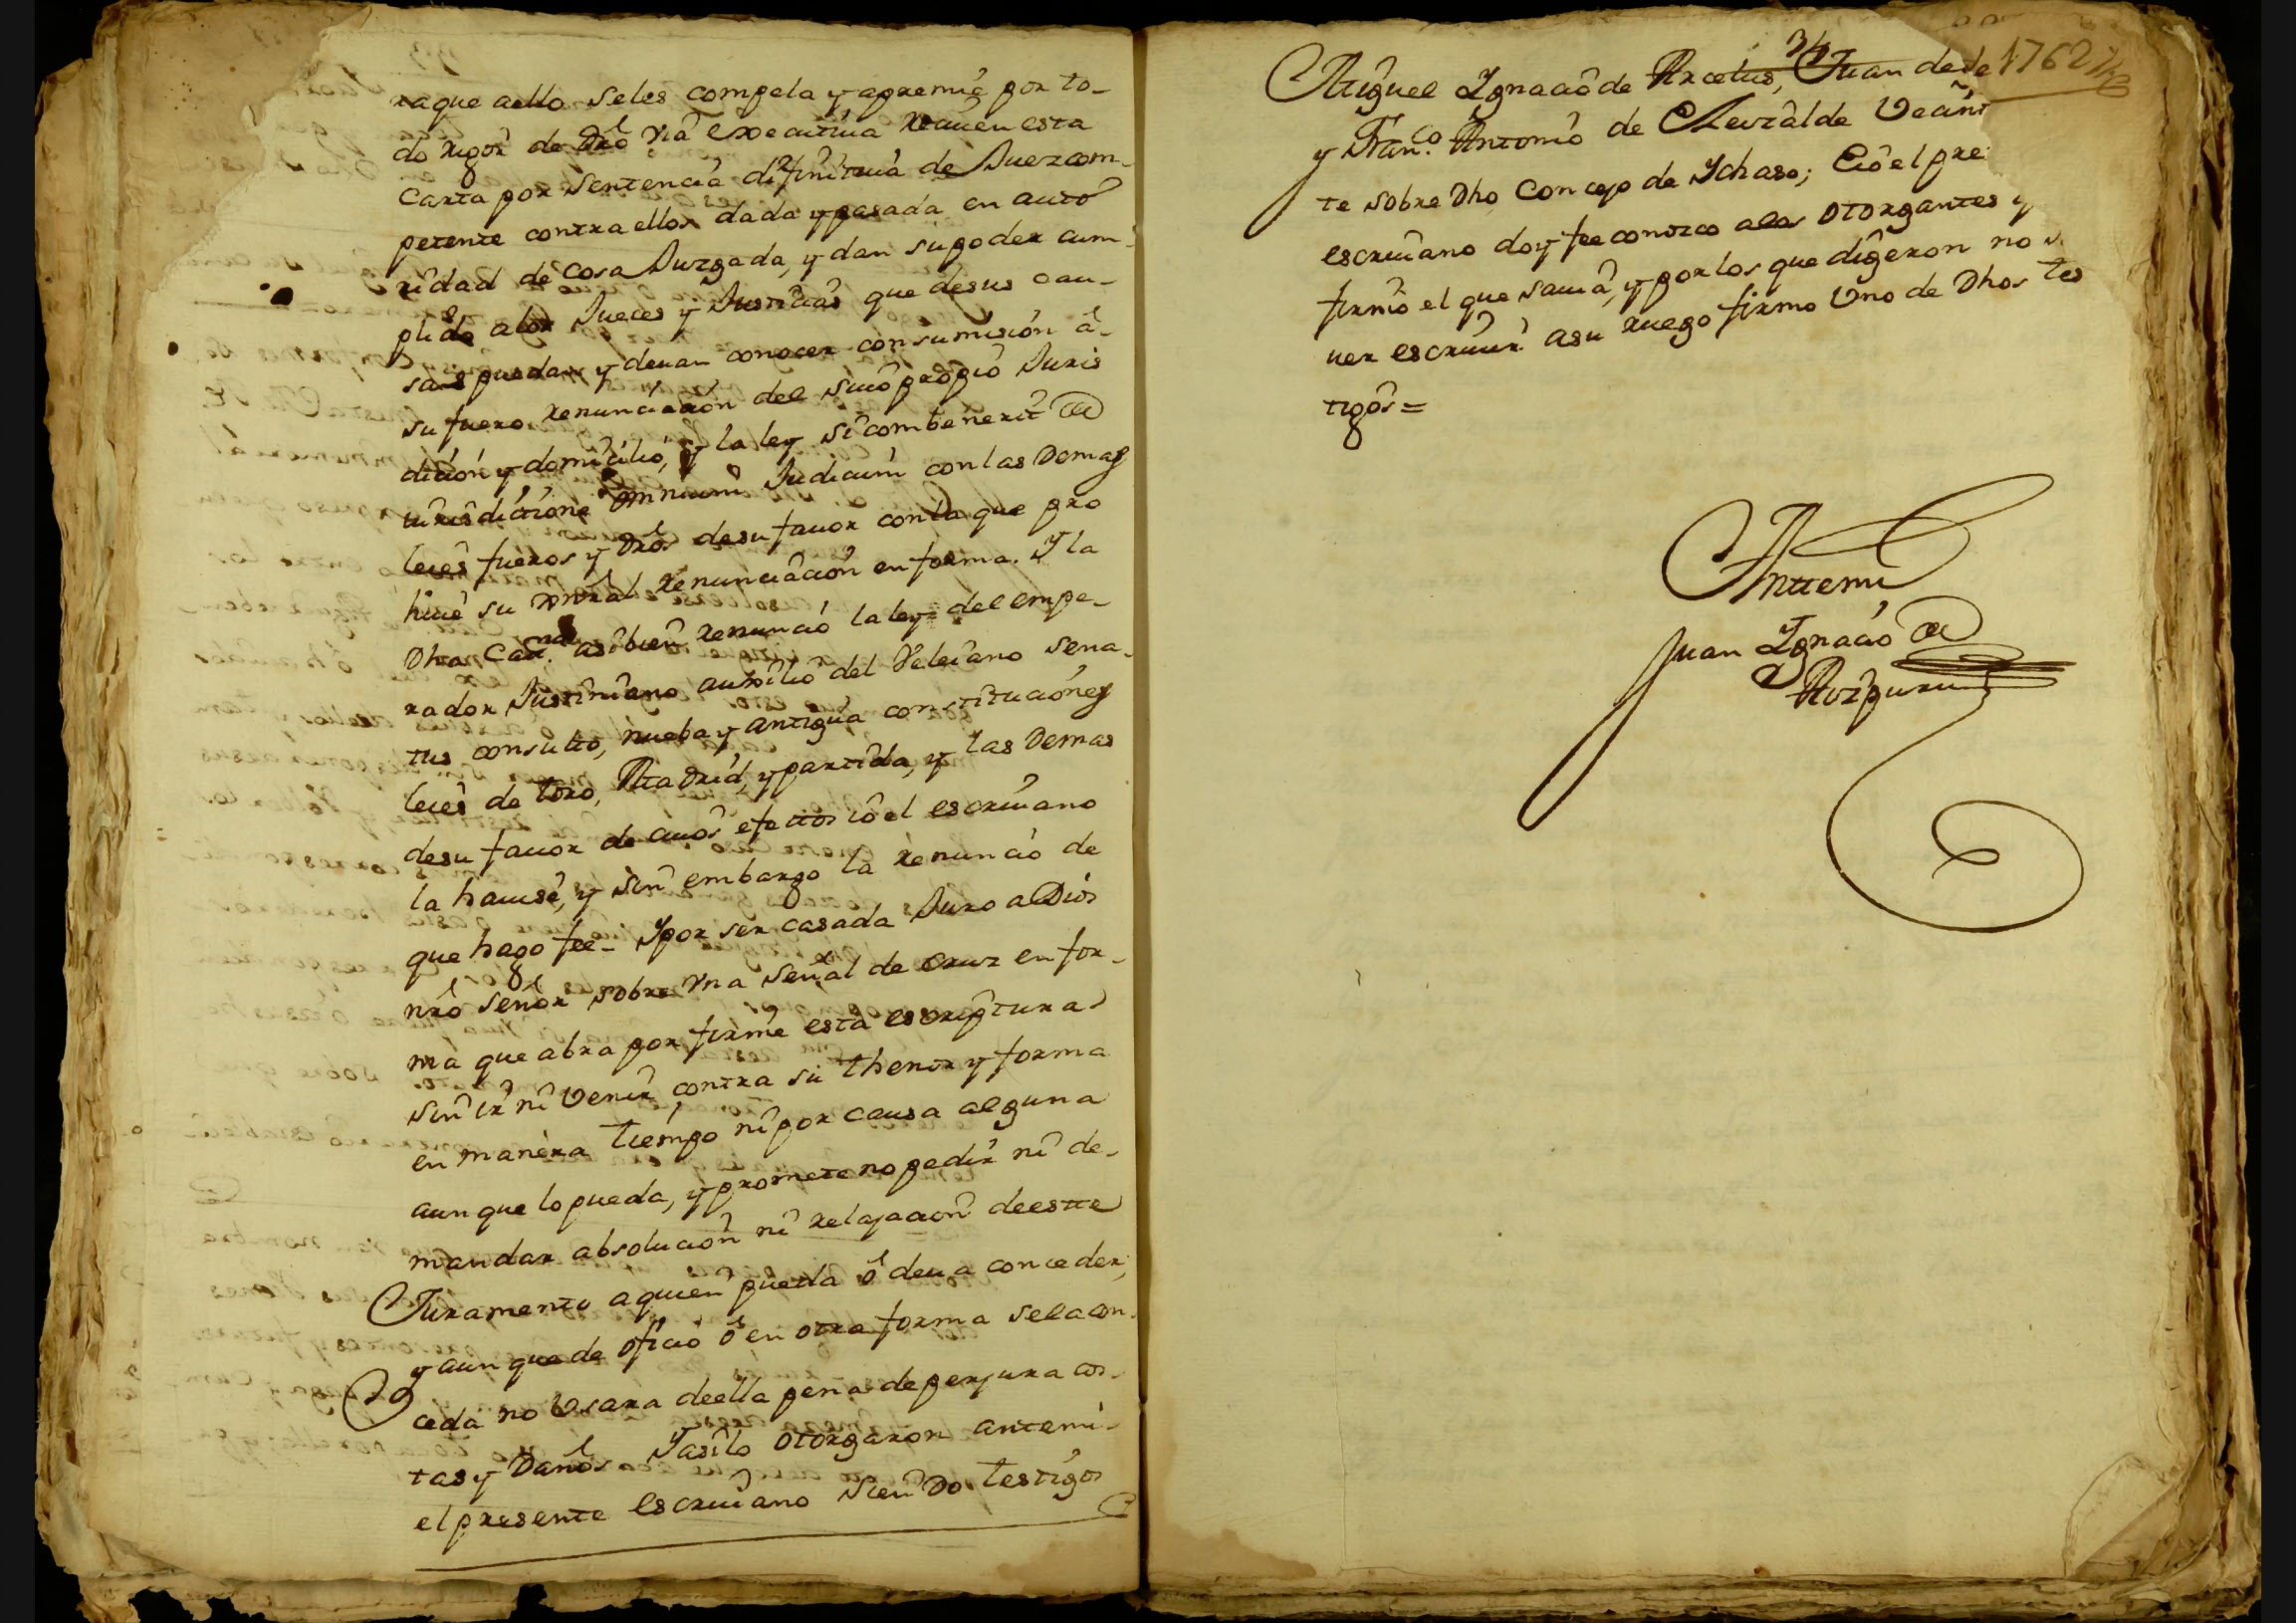 ra que a ello seles compela y apremie por to-
do rigor de dro via executiua reciuen esta
Carta por sentencia difinitiua de Juez com-
petente contra ellos dada y pasada en auto
ridad de cosa Juzgada, y dan su poder cum-
plido a los Jueces y Justicias que de sus cau-
sas puedan y deuan conocer con sumisión â
su fuero renunciación del suio propio Juris
dición y domicilio, y la ley si combenerit de
iurisdictione omnium Judicum con las Demas
leies fueros y dros de su fauor con la que pro
hiue su Gnral renunciación en forma. Y la
Dha Cat.na asi bien renunció la ley del empe-
rador Justiniano auxilio del Veleiano sena-
tus consulto, nueba y antigua constituciones
leies de toro, Madrid, y partida, y las Demas
de su fauor de cuios efectos io el escriuano
la hauisé, y sin embargo la renunció de
que hago fee- Y por ser casada Juro a Dios
nro señor sobre vna señal de cruz en for-
ma que abra por firme esta escriptura
sin ir ni Venir contra su thenor y forma
en manera tiempo ni por causa alguna
aunque lo pueda, y promete no pedir ni de-
mandar absolución ni relajación de estte
Juramento a quien pueda ó deua conceder,
y aunque de oficio ó en otra forma sela con-
ceda no Usara de ella pena de perjura cos-
tas y Daños Y asi lo otorgaron antemi
el presente escriuano siendo testigos
34 1762
Miguel Ignacio de Arcelus, Juan de
y Fran.co Antonio de
te sobre Dho Concejo de Ichaso; E io el pre
escriuano doy fee conozco a los otorgantes y
firmó el que sauia, y por los que digeron no s
uer escriuir a su ruego firmo Uno de Dhos tes
tigos =
Anttemi
Juan Ignacio de
Aozpuru